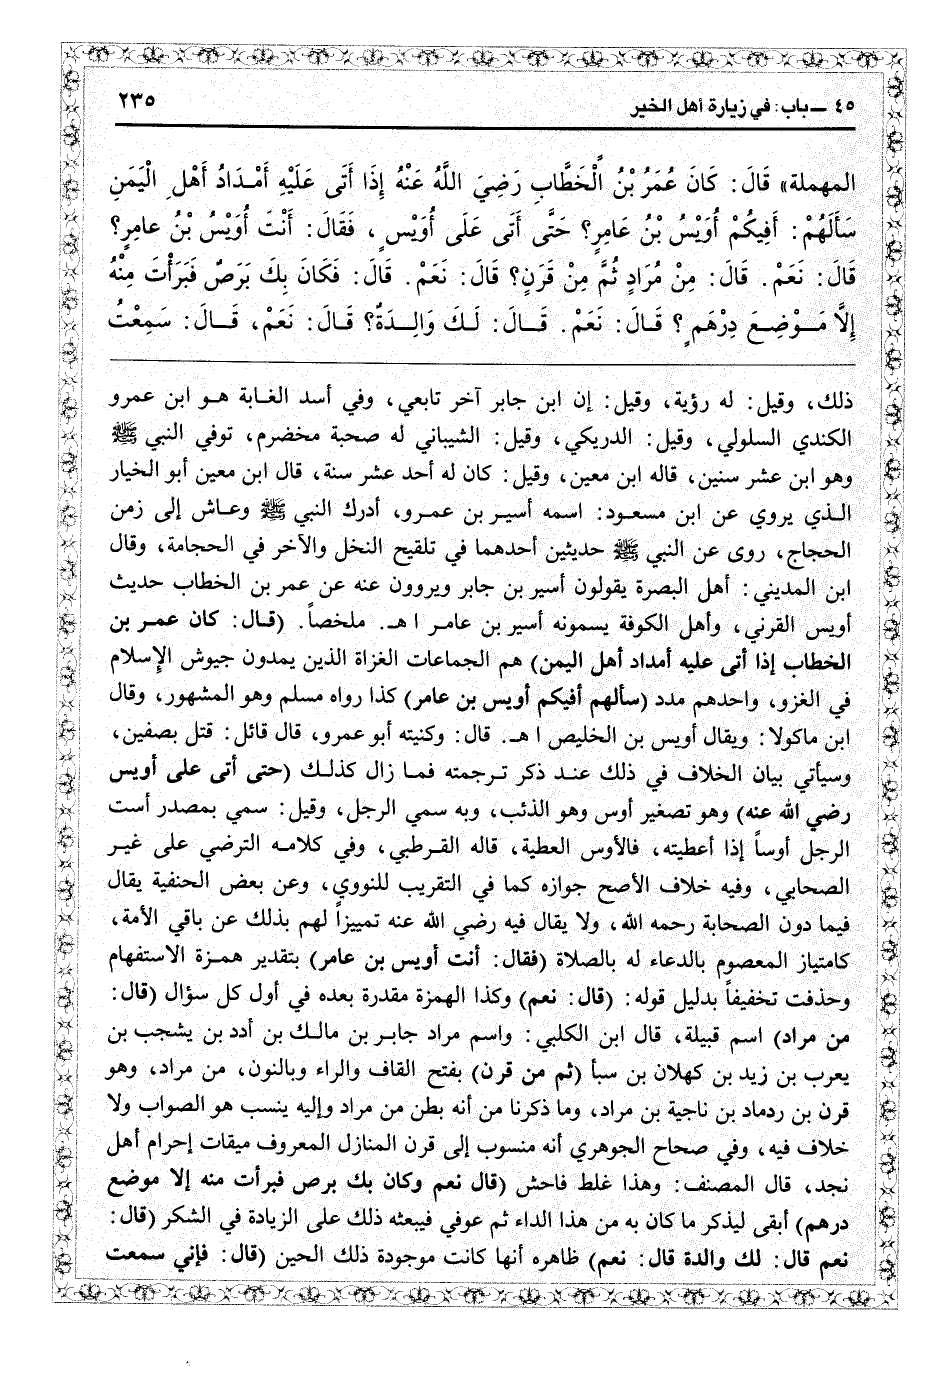 ٤٥ ــ باب: في زيارة أهل الخير
٢٣٥
المهملة» قَالَ: كَانَ عُمَرُ بْنُ الْخَطَّابِ رَضِيَ اللَّهُ عَنْهُ إِذَا أَتَى عَلَيْهِ أَمْدَادُ أَهْلِ الْيَمَنِ
سَأَلَهُمْ: أَفِيكُمْ أُوَيْسُ بْنُ عَامِرٍ؟ حَتَّى أَتَى عَلَى أُوَيْسٍ، فَقَالَ: أَنْتَ أُوَيْسُ بْنُ عامِرٍ؟
قَالَ: نَعَمْ. قَالَ: مِنْ مُرَادٍ ثُمَّ مِنْ قَرَنٍ؟ قَالَ: نَعَمْ. قَالَ: فَكَانَ بِكَ بَرَصٌ فَبَرَأْتَ مِنْهُ
إِلَّا مَوْضِعَ دِرْهَمٍ؟ قَالَ: نَعَمْ. قَالَ: لَكَ وَالِدَةٌ؟ قَالَ: نَعَمْ، قَالَ: سَمِعْتُ
ذلك، وقيل: له رؤية، وقيل: إن ابن جابر آخر تابعي، وفي أسد الغابة هو ابن عمرو
الكندي السلولي، وقيل: الدريكي، وقيل: الشيباني له صحبة مخضرم، توفي النبي ﷺ
وهو ابن عشر سنين، قاله ابن معين، وقيل: كان له أحد عشر سنة، قال ابن معين أبو الخيار
الذي يروي عن ابن مسعود: اسمه أسير بن عمرو، أدرك النبي ﷺ وعاش إلى زمن
الحجاج، روى عن النبي ﷺ حديثين أحدهما في تلقيح النخل والآخر في الحجامة، وقال
ابن المديني: أهل البصرة يقولون أسير بن جابر ويروون عنه عن عمر بن الخطاب حديث
أويس القرني، وأهل الكوفة يسمونه أسير بن عامر ا هـ. ملخصاً. (قال: كان عمر بن
الخطاب إذا أتى عليه أمداد أهل اليمن) هم الجماعات الغزاة الذين يمدون جيوش الإسلام
في الغزو، واحدهم مدد (سألهم أفيكم أويس بن عامر) كذا رواه مسلم وهو المشهور، وقال
ابن ماكولا: ويقال أويس بن الخليص ا هـ. قال: وكنيته أبو عمرو، قال قائل: قتل بصفين،
وسيأتي بيان الخلاف في ذلك عند ذكر ترجمته فما زال كذلك (حتى أتى على أويس
رضي الله عنه) وهو تصغير أوس وهو الذئب، وبه سمي الرجل، وقيل: سمي بمصدر أست
الرجل أوساً إذا أعطيته، فالأوس العطية، قاله القرطبي، وفي كلامه الترضي على غير
الصحابي، وفيه خلاف الأصح جوازه كما في التقريب للنووي، وعن بعض الحنفية يقال
فيما دون الصحابة رحمه الله، ولا يقال فيه رضي الله عنه تمييزاً لهم بذلك عن باقي الأمة،
كامتياز المعصوم بالدعاء له بالصلاة (فقال: أنت أويس بن عامر) بتقدير همزة الاستفهام
وحذفت تخفيفاً بدليل قوله: (قال: نعم) وكذا الهمزة مقدرة بعده في أول كل سؤال (قال:
من مراد) اسم قبيلة، قال ابن الكلبي: واسم مراد جابر بن مالك بن أدد بن يشجب بن
يعرب بن زيد بن كهلان بن سبأ (ثم من قرن) بفتح القاف والراء وبالنون، من مراد، وهو
قرن بن ردماد بن ناجية بن مراد، وما ذكرنا من أنه بطن من مراد وإليه ينسب هو الصواب ولا
خلاف فيه، وفي صحاح الجوهري أنه منسوب إلى قرن المنازل المعروف ميقات إحرام أهل
نجد، قال المصنف: وهذا غلط فاحش (قال نعم وكان بك برص فبرأت منه إلا موضع
درهم) أبقى ليذكر ما كان به من هذا الداء ثم عوفي فيبعثه ذلك على الزيادة في الشكر (قال:
نعم قال: لك والدة قال: نعم) ظاهره أنها كانت موجودة ذلك الحين (قال: فإني سمعت